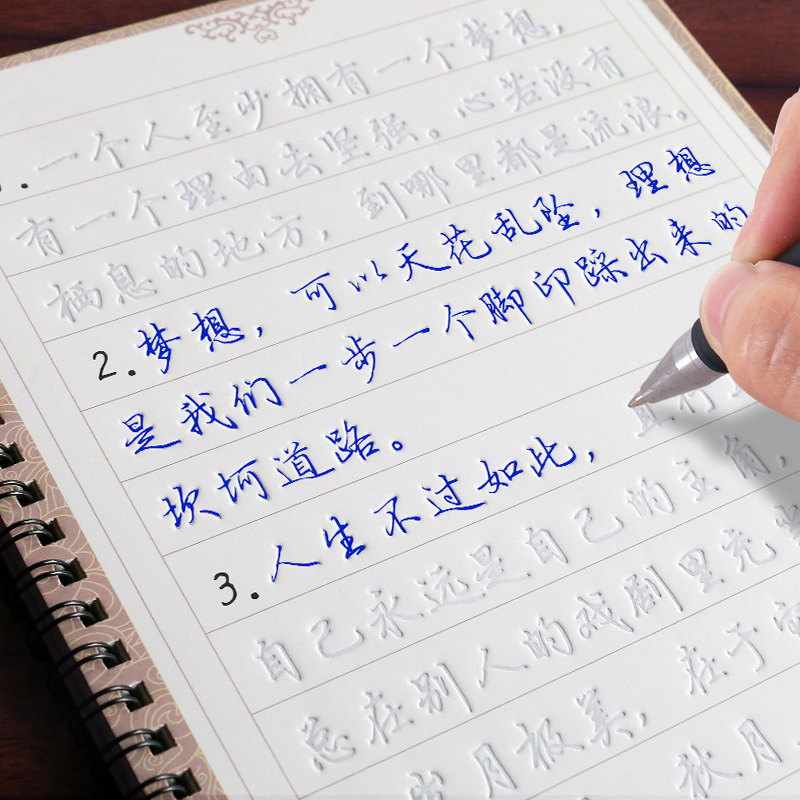 一个人至少拥有一个梦想，
有一个理由去坚强。心若没有
栖息的地方，到哪里都是流浪。
2. 梦想，可以天花乱坠，理想
是我们一步一个脚印踩出来的
坎坷道路。
3. 人生不过如此，且行
自己永远是自己的主角，
总在别人的戏剧里充当
岁月极美，在于它
秋月